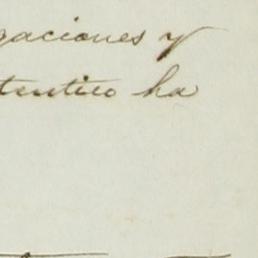 gaciones y
tentico ha